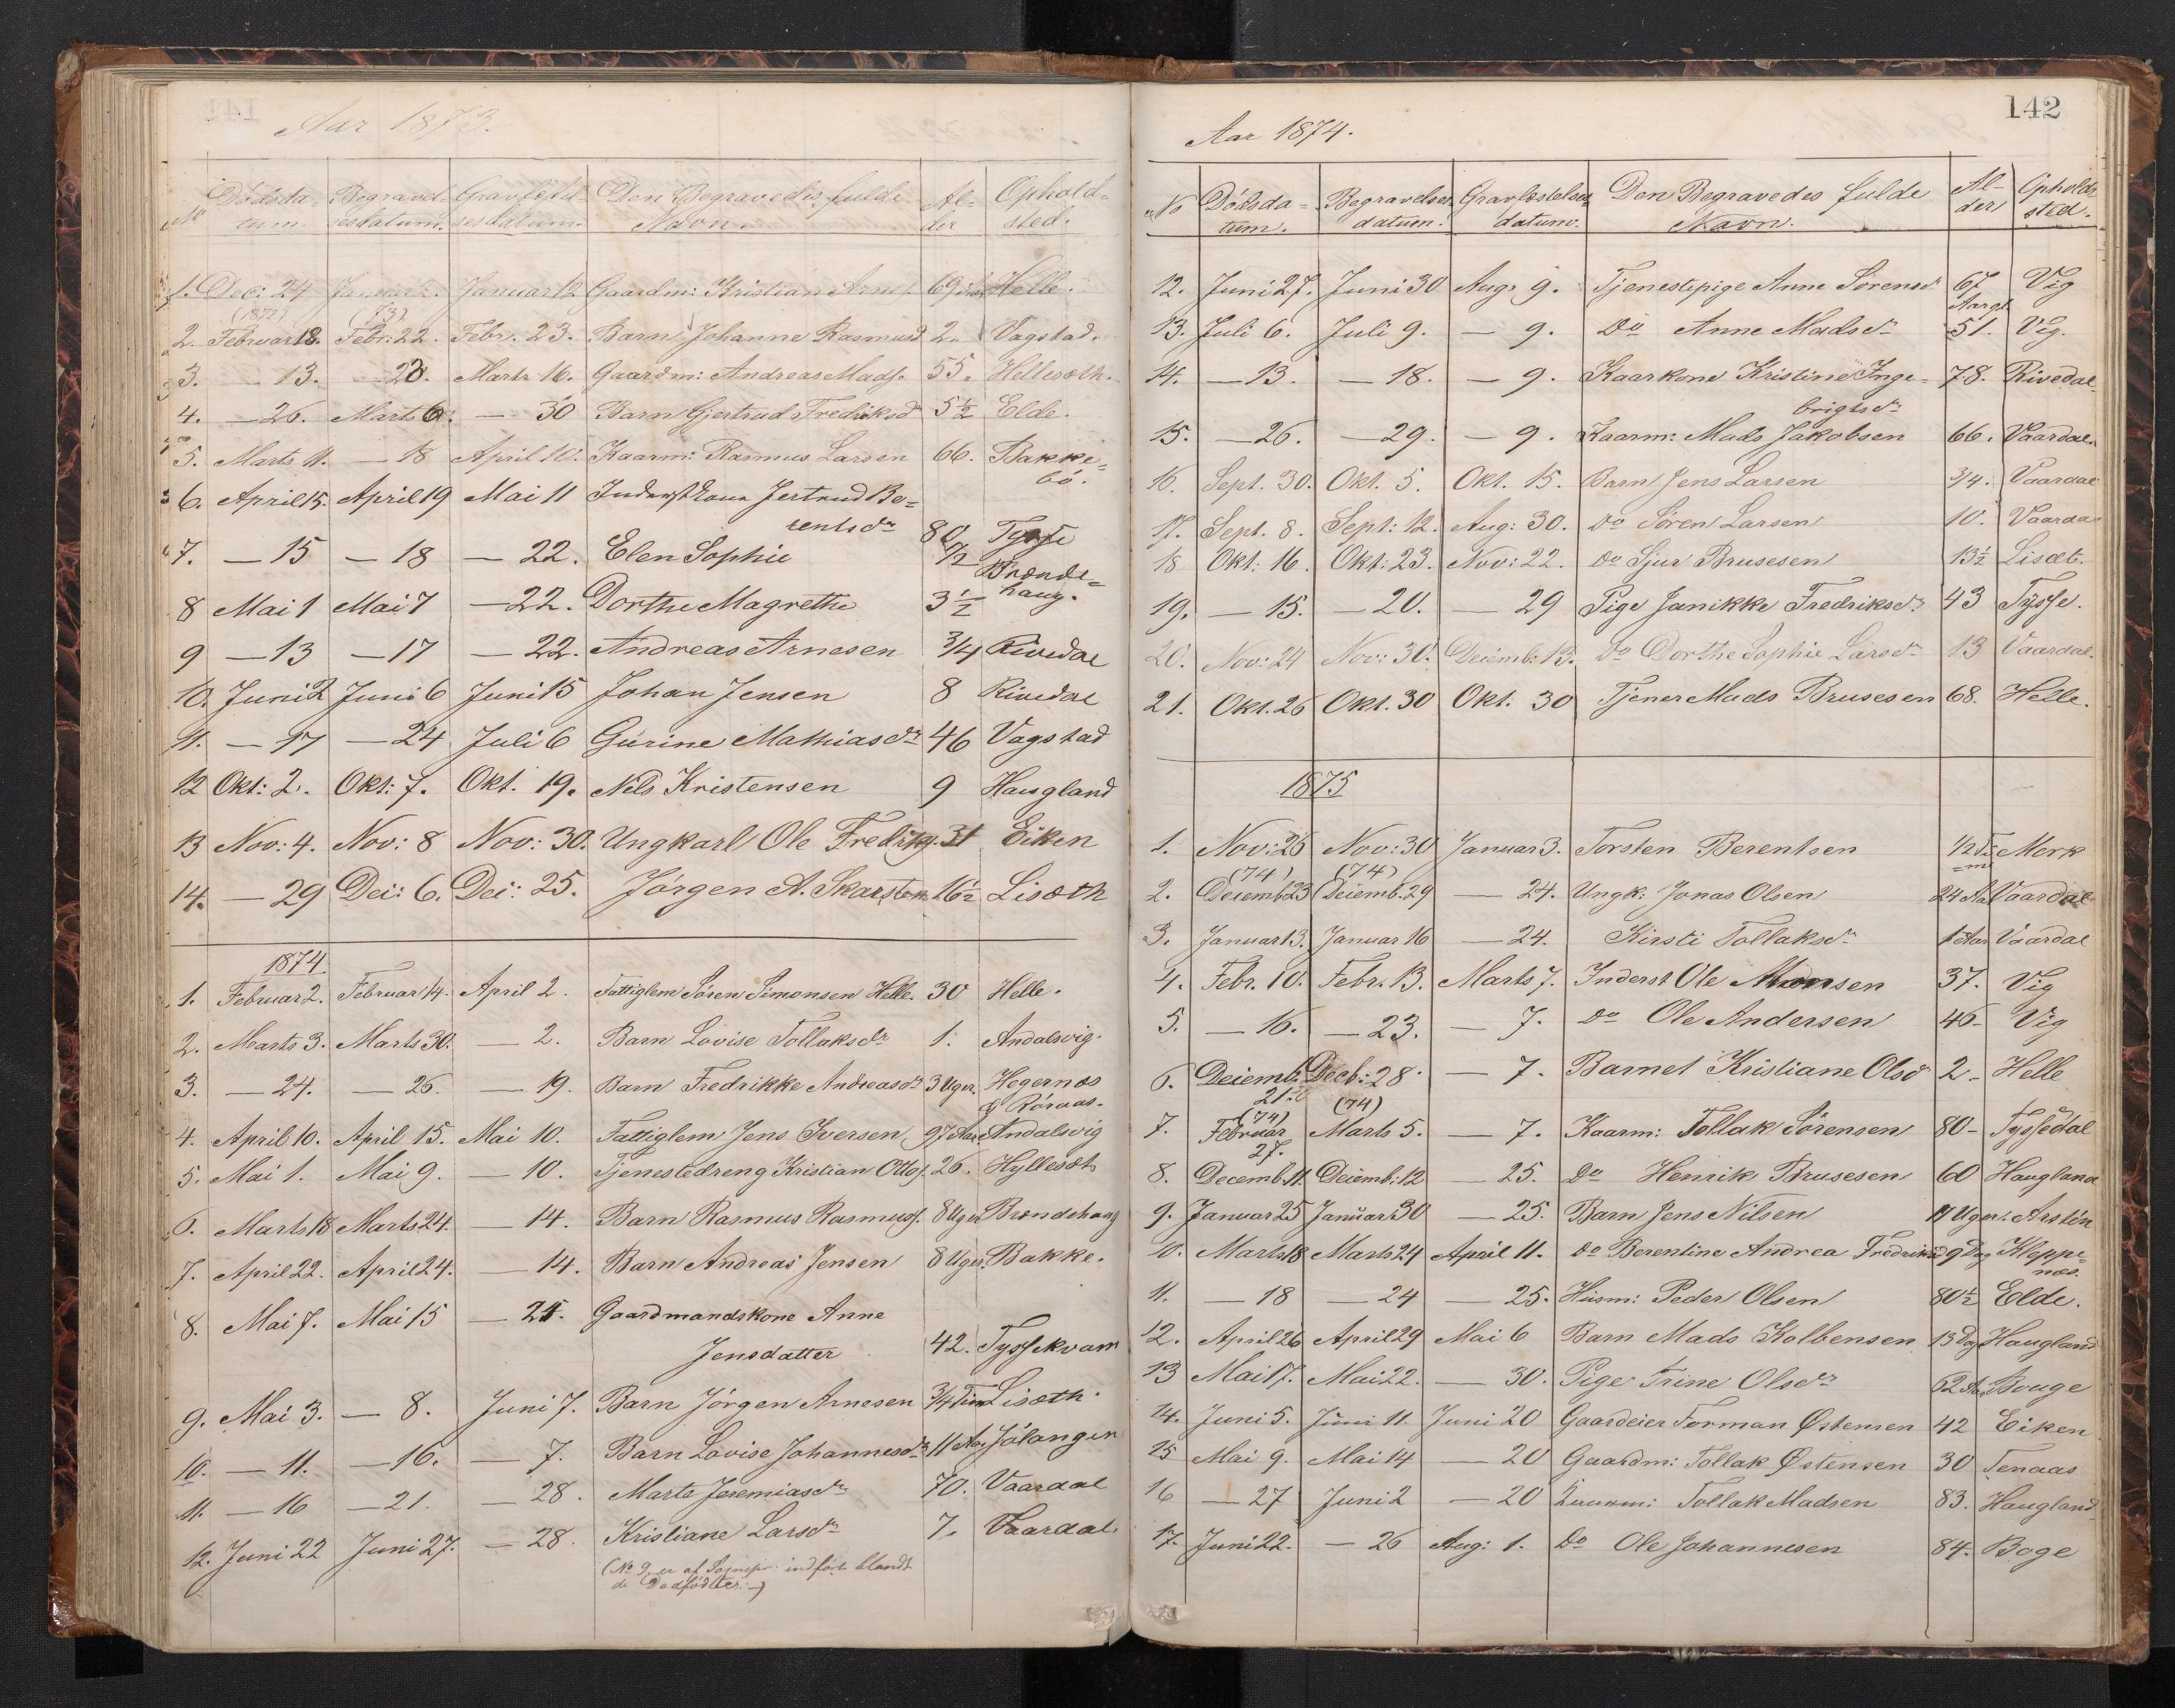 Aar 1873.
No Dödsda= Begravel= Gravfæstel= Den Begravedes fulde Al= Ophold=
tum. sesdatum. sesdatum. Navn. der sted.
1. Dec: 24 Januar Januar 12 Gaardm: Kristian Arnes. 69 Helle.
(1872) (73)
2. Februar 18. Febr. 22. Febr. 23. Barn Johanne Rasmusd 2. Vagstad.
3. — 13. — 23. Marts 16. Gaardm: Andreas Mads. 55. Hellesæth.
4. — 26. Marts 6. — 30 Barn Gjertrud Fredriksd 5½ Elde.
5. Marts 11. — 18 April 10. Kaarm: Rasmus Larsen 66. Bakke=
bö.
6. April 15. April 19 Mai 11 Inderstkone Jertrud Be=
rentsdr 80 Tysse
7. — 15 — 18 — 22. Elen Sophie ½ Brænde=
haug.
8 Mai 1 Mai 7 — 22. Dorthe Magrethe 3½
9 — 13 — 17 — 22. Andreas Arnesen ¾ Rivedal
10. Juni 2 Juni 6 Juni 15 Johan Jensen 8 Rivedal
11. — 17 — 24 Juli 6 Gurine Mathiasdr 46 Vagstad
12 Okt: 2. Okt: 7. Okt. 19. Nels Kristensen 9 Haugland
13 Nov: 4. Nov: 8 Nov: 30. Ungkarl Ole Fredriks. 31 Eiken
14. — 29 Dec: 6. Dec: 25. Jörgen A. Skarsten 16½ Lisæth
1874
1. Februar 2. Februar 14. April 2. Fattiglem Sören Simonsen Helle. 30 Helle.
2. Marts 3. Marts 30. — 2. Barn Lovise Tollaksdr 1. Andalsvig.
3. — 24. — 26. — 19. Barn Fredrikke Andreasdr 3 Uger. Hegernæs
Röraas.
4. April 10. April 15. Mai 10. Fattiglem Jens Iversen 97 Aar Andalsvig
5. Mai 1. Mai 9. — 10. Tjenestedreng Kristian Ottos. 26. Hyllesæt
6. Marts 18 Marts 24. — 14. Barn Rasmus Rasmuss. 8 Uger Brændehaug
7. April 22. April 24. — 14. Barn Andreas Jensen 8 Uger. Bakke.
8. Mai 7. Mai 15 — 25. Gaardmandskone Anne
Jensdatter 42. Tyssekvam
9. Mai 3. — 8. Juni 7. Barn Jörgen Arnesen ¾ Tim Lisæth.
10. — 11. — 16. — 7. Barn Lovise Johannesdr 11 Jölanger
11. — 16 — 21. — 28. Marte Jeremiasdr 70. Vaardal
12. Juni 22 Juni 27. — 28. Kristiane Larsdr 7. Vaardal.
(No 9, er af Sognepr: indfört blandt
de Dödfödte: —)
142
Aar 1874.
No Dödsda= Begravelses Gravfæstelses Den Begravedes fulde Al= Opholds
tum. datum. datum. Navn. der sted.
12. Juni 27. Juni 30 Aug. 9. Tjenestepige Anne Sörensd 67 Vig
Aargl
13. Juli 6. Juli 9. — 9. Do Anne Madsdr 51. Vig.
14. — 13. — 18. — 9. Kaarkone Kristine Inge= 78. Rivedal
brigtsdr
15. — 26. — 29. — 9. Kaarm: Mads Jakobsen 66. Vaardal.
16. Sept. 30. Okt. 5. Okt. 15. Barn Jens Larsen ¾. Vaardal
17. Sept. 8. Sept: 12. Aug: 30. Do Sören Larsen 10. Vaardal
18 Okt: 16. Okt: 23. Nov: 22. Do Sjur Brusesen 13½ Lisæt.
19. — 15. — 20. — 29 Pige Janikke Fredriksdr 43 Tysse.
20. Nov: 24 Nov: 30. Decemb: 13. Do Dorthe Sophie Larsdr 13 Vaardal.
21. Okt. 26 Okt. 30 Okt. 30 Tjener Mads Brusesen 68. Helle.
1875
1. Nov: 26 Nov: 30 Januar 3. Torsten Berentsen ½ Ti= Merk
(74) (74) me
2. Decemb 23 Decemb. 29 — 24. Ungk: Jonas Olsen 24 Aar Vaardal
3. Januar 13. Januar 16 — 24. Kirsti Tollaksdr 1 Aar Vaardal
4. Febr. 10. Febr. 13. Marts 7. Inderst Ole Monsen 37. Vig
5. — 16. — 23. — 7. Do Ole Andersen 46 — Vig
6. Decemb: Decb: 28. — 7. Barnet Kristiane Olsd 2 — Helle
21 (74)
(74)
7. Februar Marts 5. — 7. Kaarm: Tollak Sörensen 80 — Tyssedal
27.
8. Decemb. 11 Decemb: 12 — 25. Do Henrik Brusesen 60 Haugland
9. Januar 25 Januar 30 — 25. Barn Jens Nilsen 11 Uger. Arstén
10. Marts 18 Marts 24 April 11. Do Berentine Andrea Fredriksd 9 Dag Kleppe=
næs.
11. — 18 — 24 — 25. Husm: Peder Olsen 80½ Elde.
12. April 26 April 29 Mai 6 Barn Mads Kolbensen 13 Dag Haugland
13 Mai 17. Mai 22. — 30. Pige Trine Olsdr 62 Aar Bouge
14. Juni 5. Juni 11. Juni 20 Gaardeier Torman Østensen 42 Eiken
15 Mai 9. Mai 14 — 20 Gaardm: Tollak Østensen 30 Tenaas
16 — 27 Juni 2 — 20 Kaarm: Tollak Madsen 83. Haugland
17. Juni 22. — 26 Aug: 1. Do Ole Johannesen 84. Boge